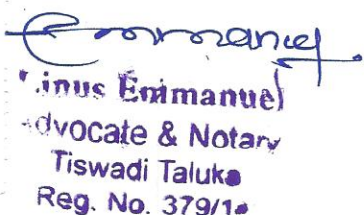 Emmanuel
.inus Emmanuel
dvocate & Notary
Tiswadi Taluka
Reg. No. 379/1